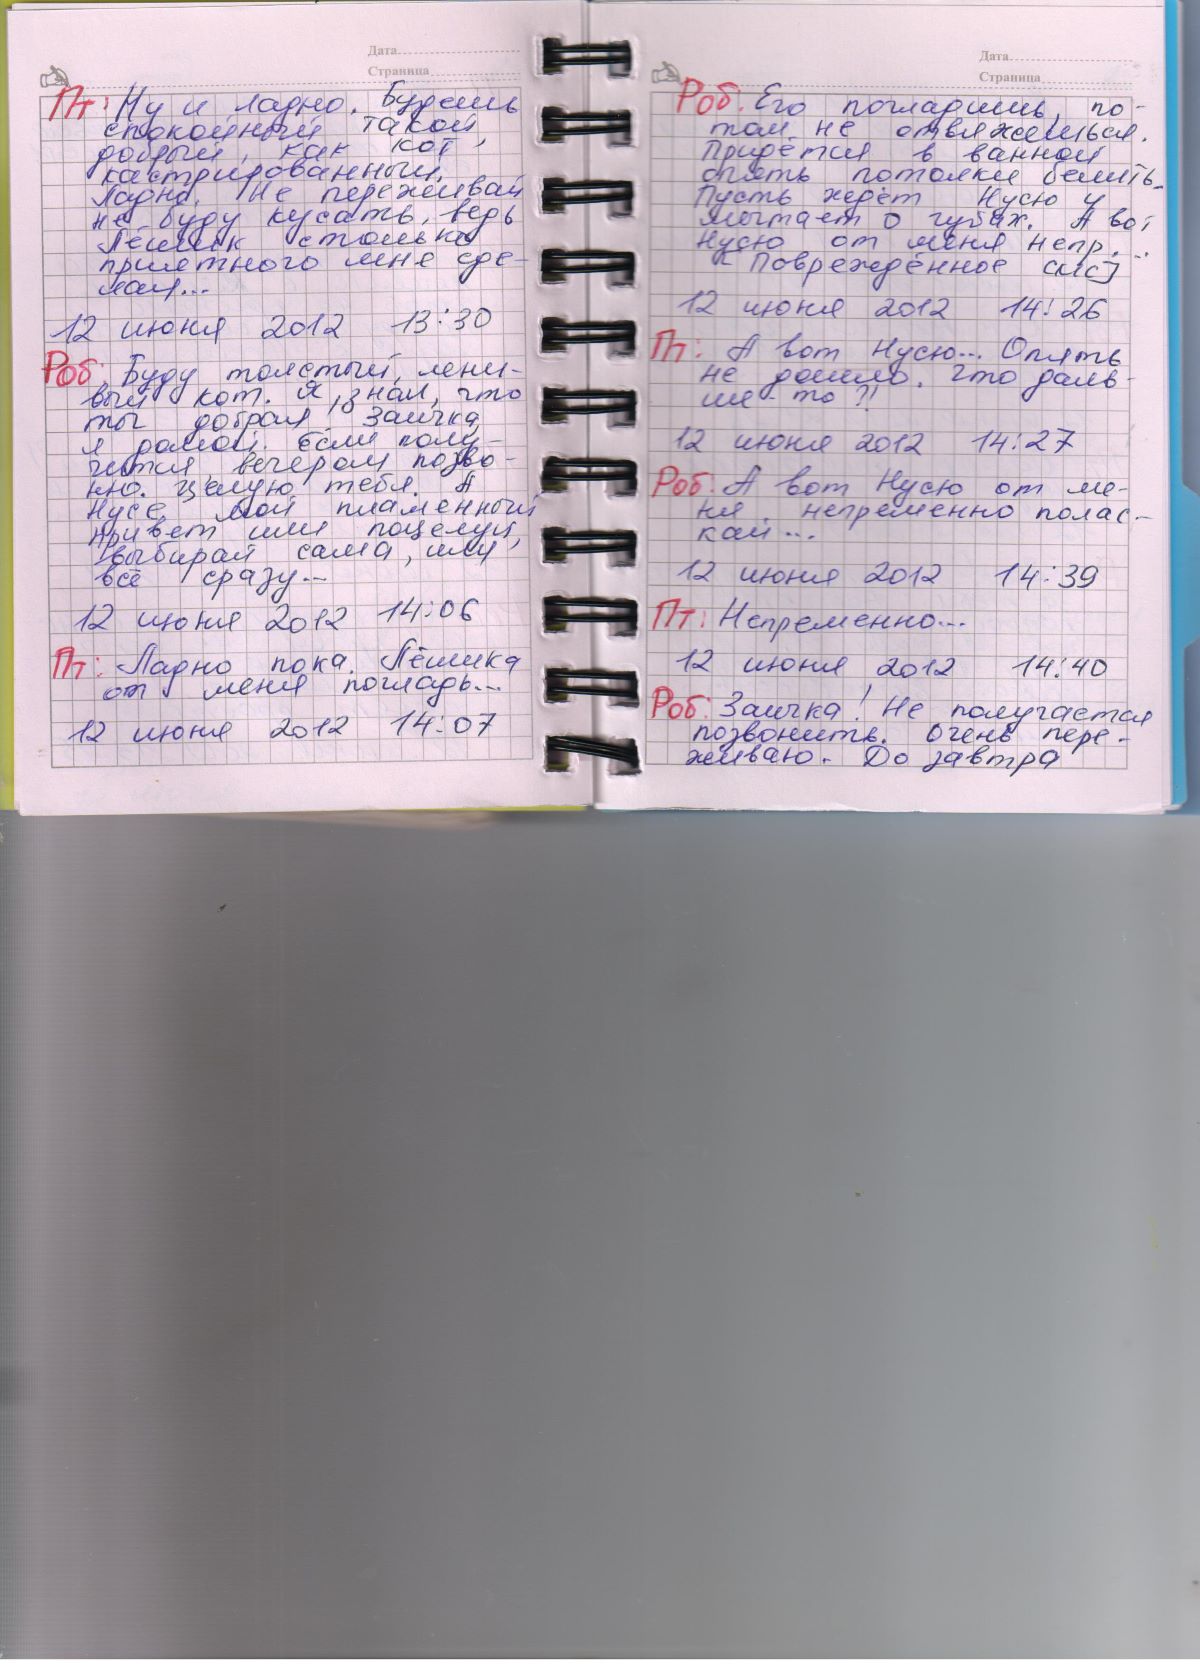 Дата
Страница
Пт: Ну и ладно. Будешь
спокойный такой,
добрый, как кот
кастрированный.
Ладно. Не переживай
не буду кусать, ведь
Лёшик столько
приятного мне сде-
лал...
12 июня 2012 13:30
Роб: Буду толстый, лени-
вый кот. Я знал, что
ты добрая. Заичка,
я домой. Если полу-
чится, вечером позво-
ню. Целую тебя. А
Нусе мой пламенный
привет или поцелуй,
выбирай сама, или
всё сразу...
12 июня 2012 14:06
Пт: Ладно пока. Лёшика
от меня погладь...
12 июня 2012 14:07
Дата
Страница
Роб: Его погладишь, по-
том не отвяжешься.
Придётся в ванной
опять потолки белить.
Пусть ждёт Нусю и
мычтает о губах. А вот
Нусю от меня непр...
К Повреждённое смс]
12 июня 2012 14:26
Пт: А вот Нусю... Опять
не дошло. Что даль-
ше-то?!
12 июня 2012 14:27
Роб: А вот Нусю от ме-
ня непременно полас-
кай...
12 июня 2012 14:39
Пт: Непременно...
12 июня 2012 14:40
Роб: Заичка! Не получается
позвонить. Очень пере-
живаю. До завтра